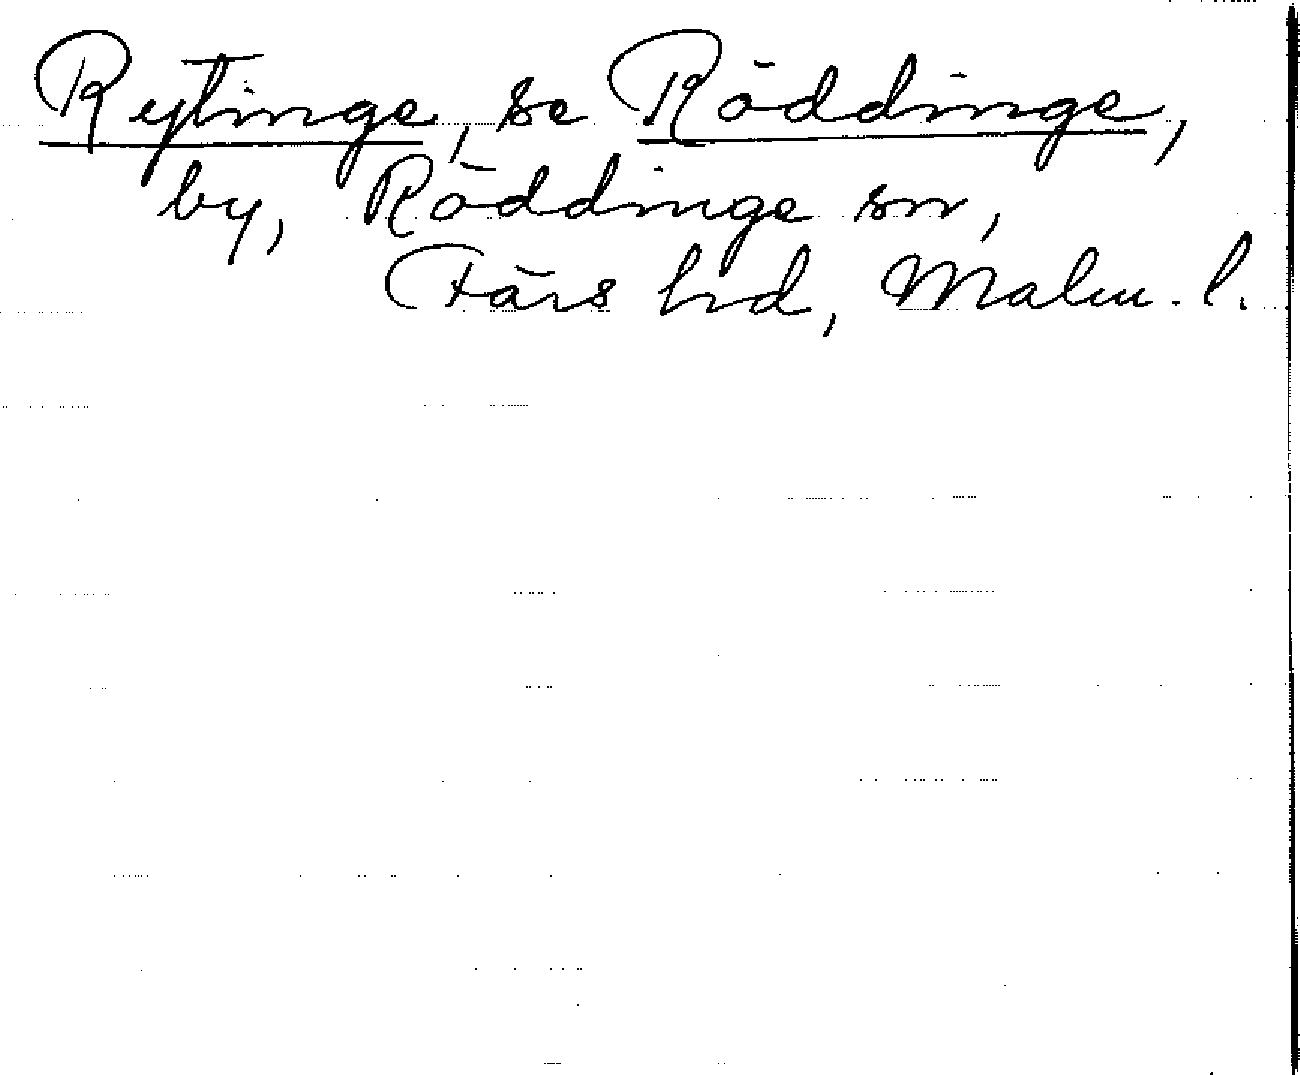 Rytinge, se Röddinge,
by, Röddinge sn,
Färs hd, Malm. l.